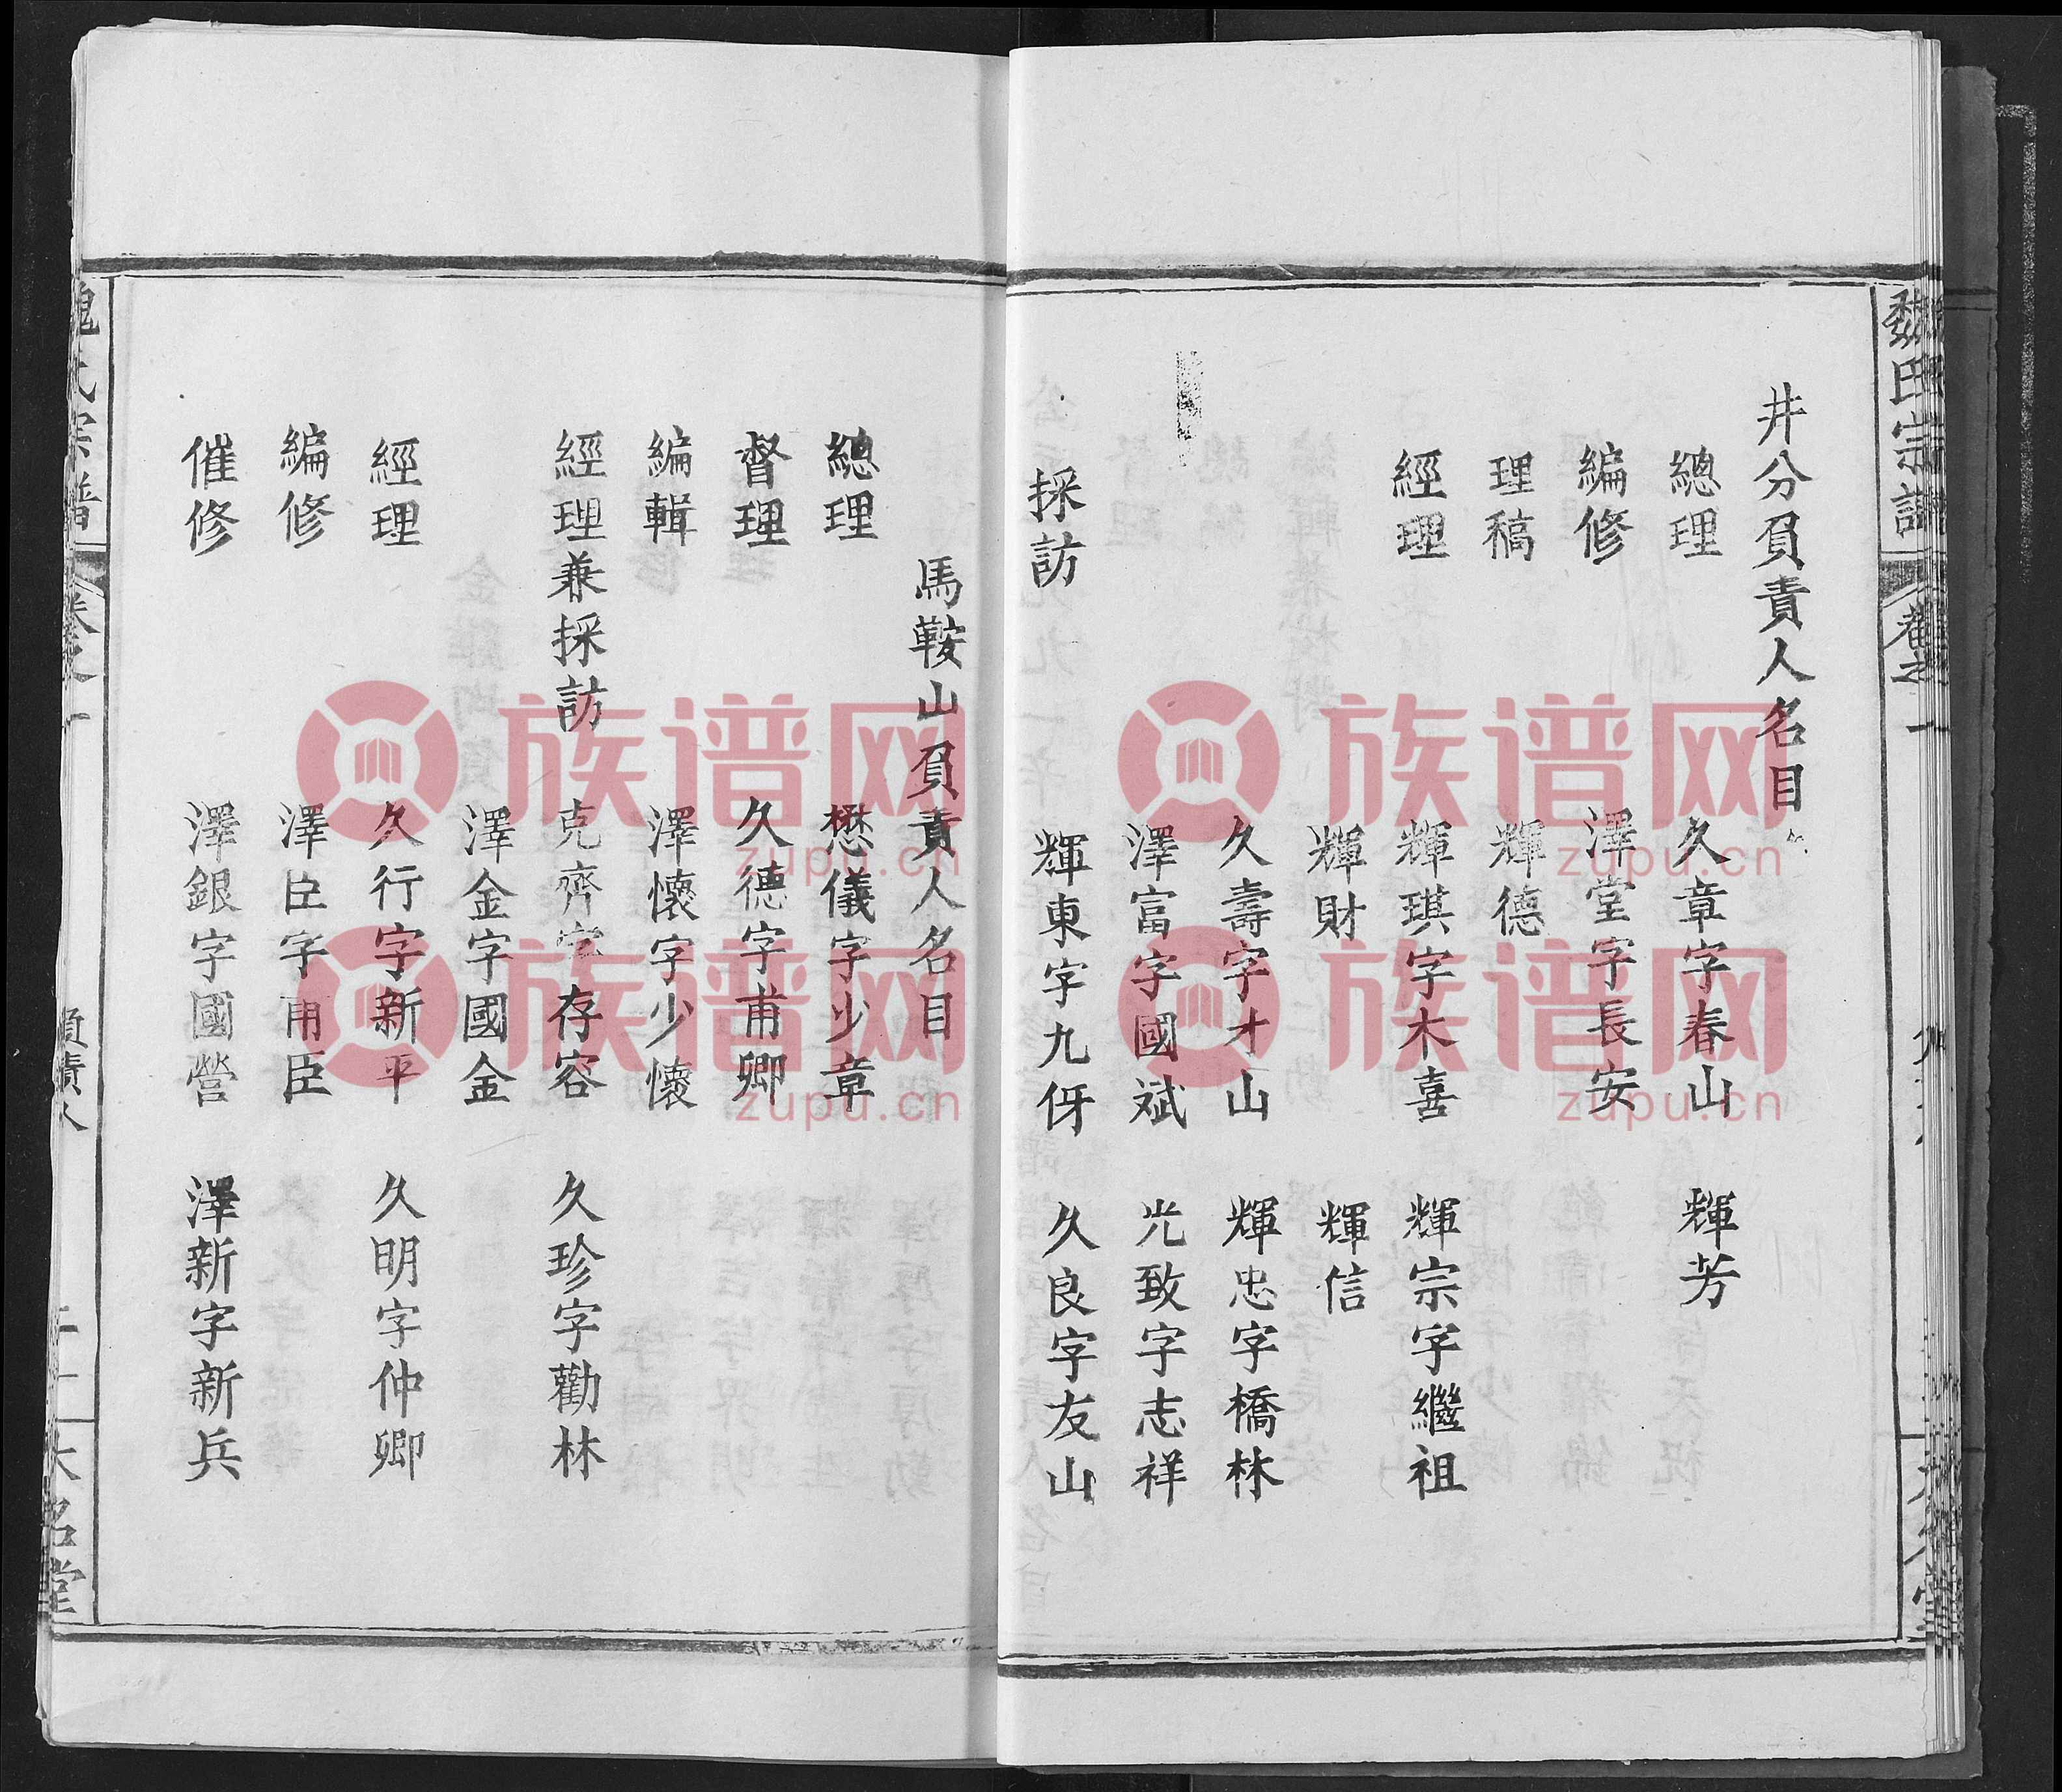 井分負責人名目
總理 久章字春山 輝芳
編修 澤堂字長安
理稿 輝德
經理 輝琪字木喜 輝宗字繼祖
輝財 輝信
久壽字才山 輝忠字橋林
澤富字國斌 光致字志祥
採訪 輝東字九伢 久良字友山
馬鞍山負責人名目
總理 懋儀字少章
督理 久德字甫卿
編輯 澤懷字少懷
經理兼採訪 克齊字存容 久珍字勸林
澤金字國金
經理 久行字新平 久明字仲卿
編修 澤臣字甫臣
催修 澤銀字國營 澤新字新兵
魏氏宗譜 卷之一 負責人 大名堂
族谱网
zupu.cn
族谱网
zupu.cn
族谱网
zupu.cn
族谱网
zupu.cn